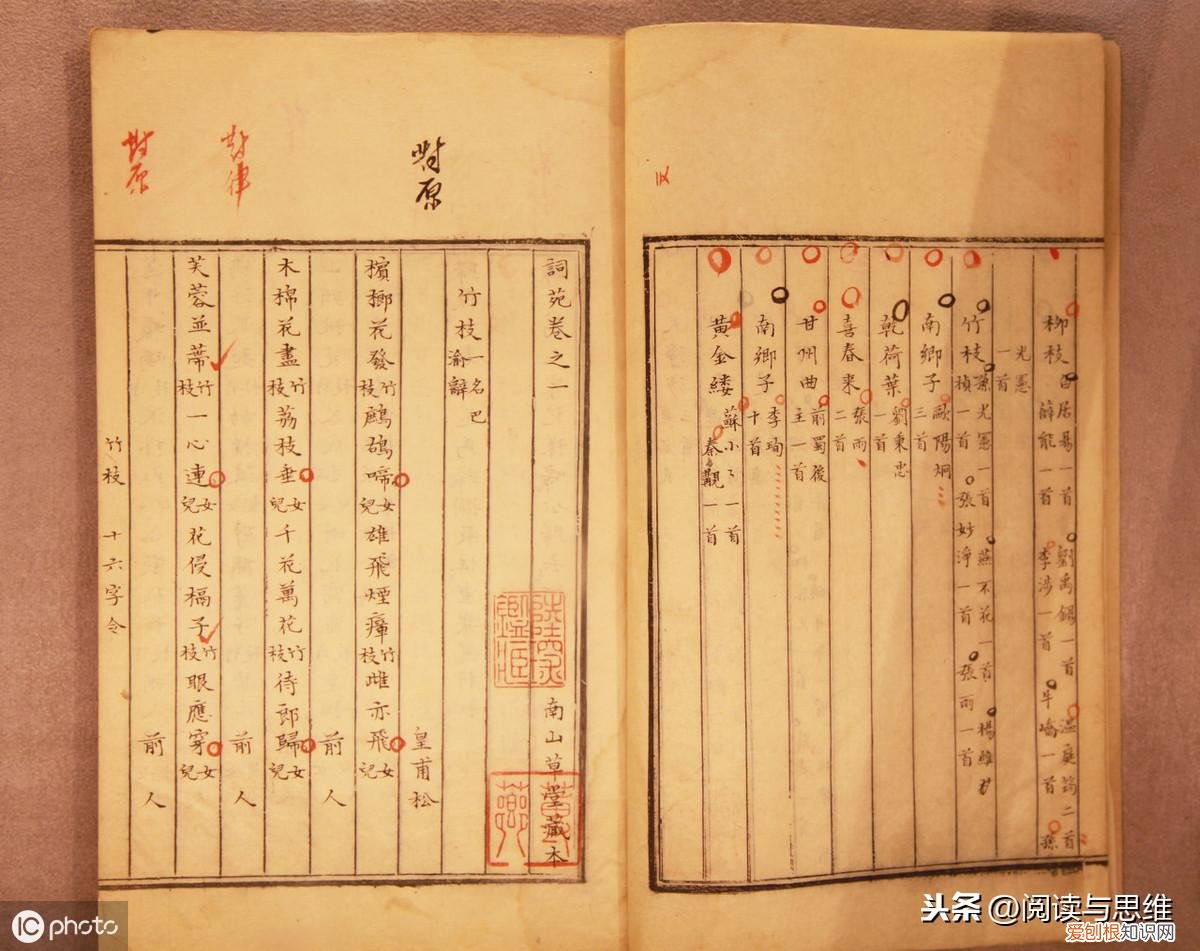 柳枝 白居易一首 劉禹錫一首 溫庭筠二首
薛能一首 李涉一首 牛嶠一首 孫
光憲
一首
竹枝 孫光憲一首 燕不花一首 楊維
楨一首 張妙淨一首 張雨一首
南鄉子 歐陽炯
三首
乾荷葉 劉秉忠
一首
喜春來 張雨
二首
甘州曲 前蜀後
主一首
南鄉子 李珣
十首
黃金縷 蘇小小一首
秦觀一首
詞苑卷之一 南山草堂藏本
竹枝 一名巴
渝辭
皇甫松
對原
檳榔花發竹枝鷓鴣啼女兒雄飛煙瘴竹枝雌亦飛女兒
前人
木棉花盡竹枝荔枝垂女兒千花萬花竹枝待郎歸女兒
對律
前人
芙蓉並蒂竹枝一心連女兒花侵槅子竹枝眼應穿女兒
對原
前人
竹枝 十六字令
IC photo
头条 @阅读与思维
爱刨根知识网